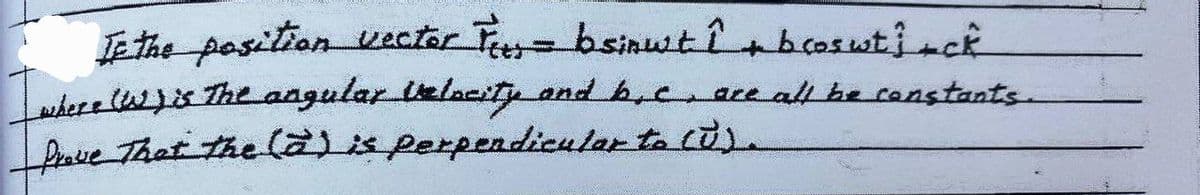 If The position vector r⃗(t) = b sinwt î + b coswt ĵ + c k̂
where (w) is The angular velocity and b, c, are all be constants.
Prove That The (a⃗) is perpendicular to (υ⃗).